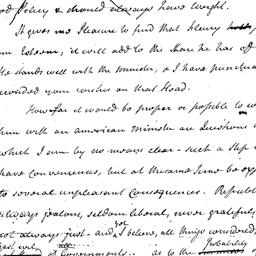 Policy & should always have weight.
It gives me Pleasure to find that Henry
Esteem, it will add to the share he has of
He stands well with the minister, & I have punctua
wishes on that Head.
How far it would be proper or possible to
him with an american minister in
which I am by no means clear - such a Step
have conveniences, but at the same time be
to several unpleasant Consequences. Republi
always jealous, seldom liberal, never grateful,
not always just - and yet I believe, all things considered,
least evil of Governments - as to the Probability